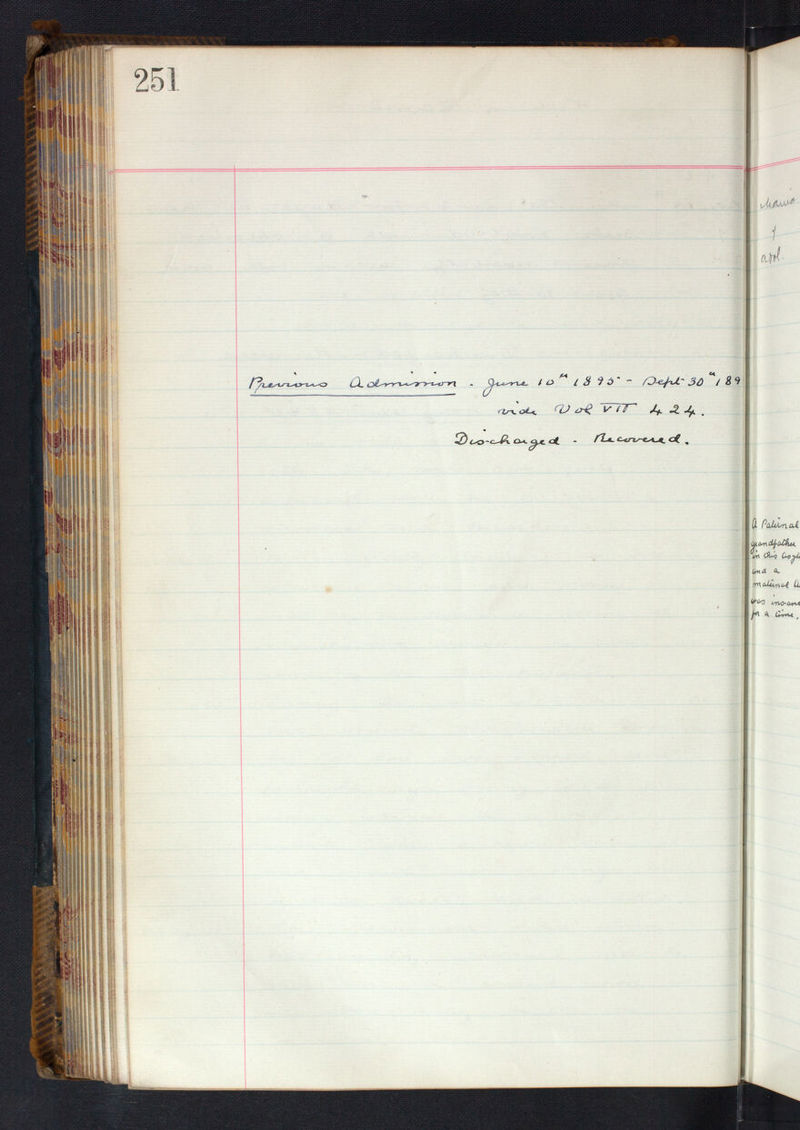 251
Previous Admission - June 10th 1895 - Sept 30th 189
vide Vol VII 424.
Discharged - Recovered.
Mania
f
apl.
A Paternal
grandfather
in this Asyl
and a
maternal A
was insane
for a time,